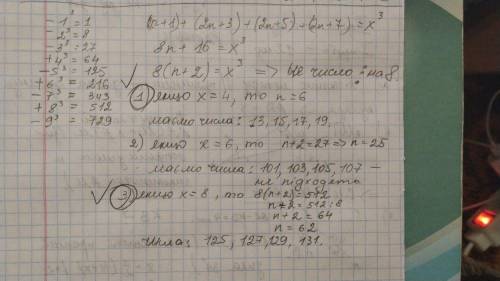 - 1³ = 1
- 2³ = 8
- 3³ = 27
+ 4³ = 64
- 5³ = 125
+ 6³ = 216
- 7³ = 343
+ 8³ = 512
- 9³ = 729
(2n+1) + (2n+3) + (2n+5) + (2n+7) = x³
8n + 16 = x³
8(n+2) = x³ => Це число ⋮ на 8
√ ① якщо x = 4, то n = 6
маємо числа: 13, 15, 17, 19.
2) якщо x = 6, то n+2 = 27 => n = 25
маємо числа: 101, 103, 105, 107 –
не підходять
√ ③ якщо x = 8, то 8(n+2) = 512
n+2 = 512 : 8
n+2 = 64
n = 62
Числа: 125, 127, 129, 131.